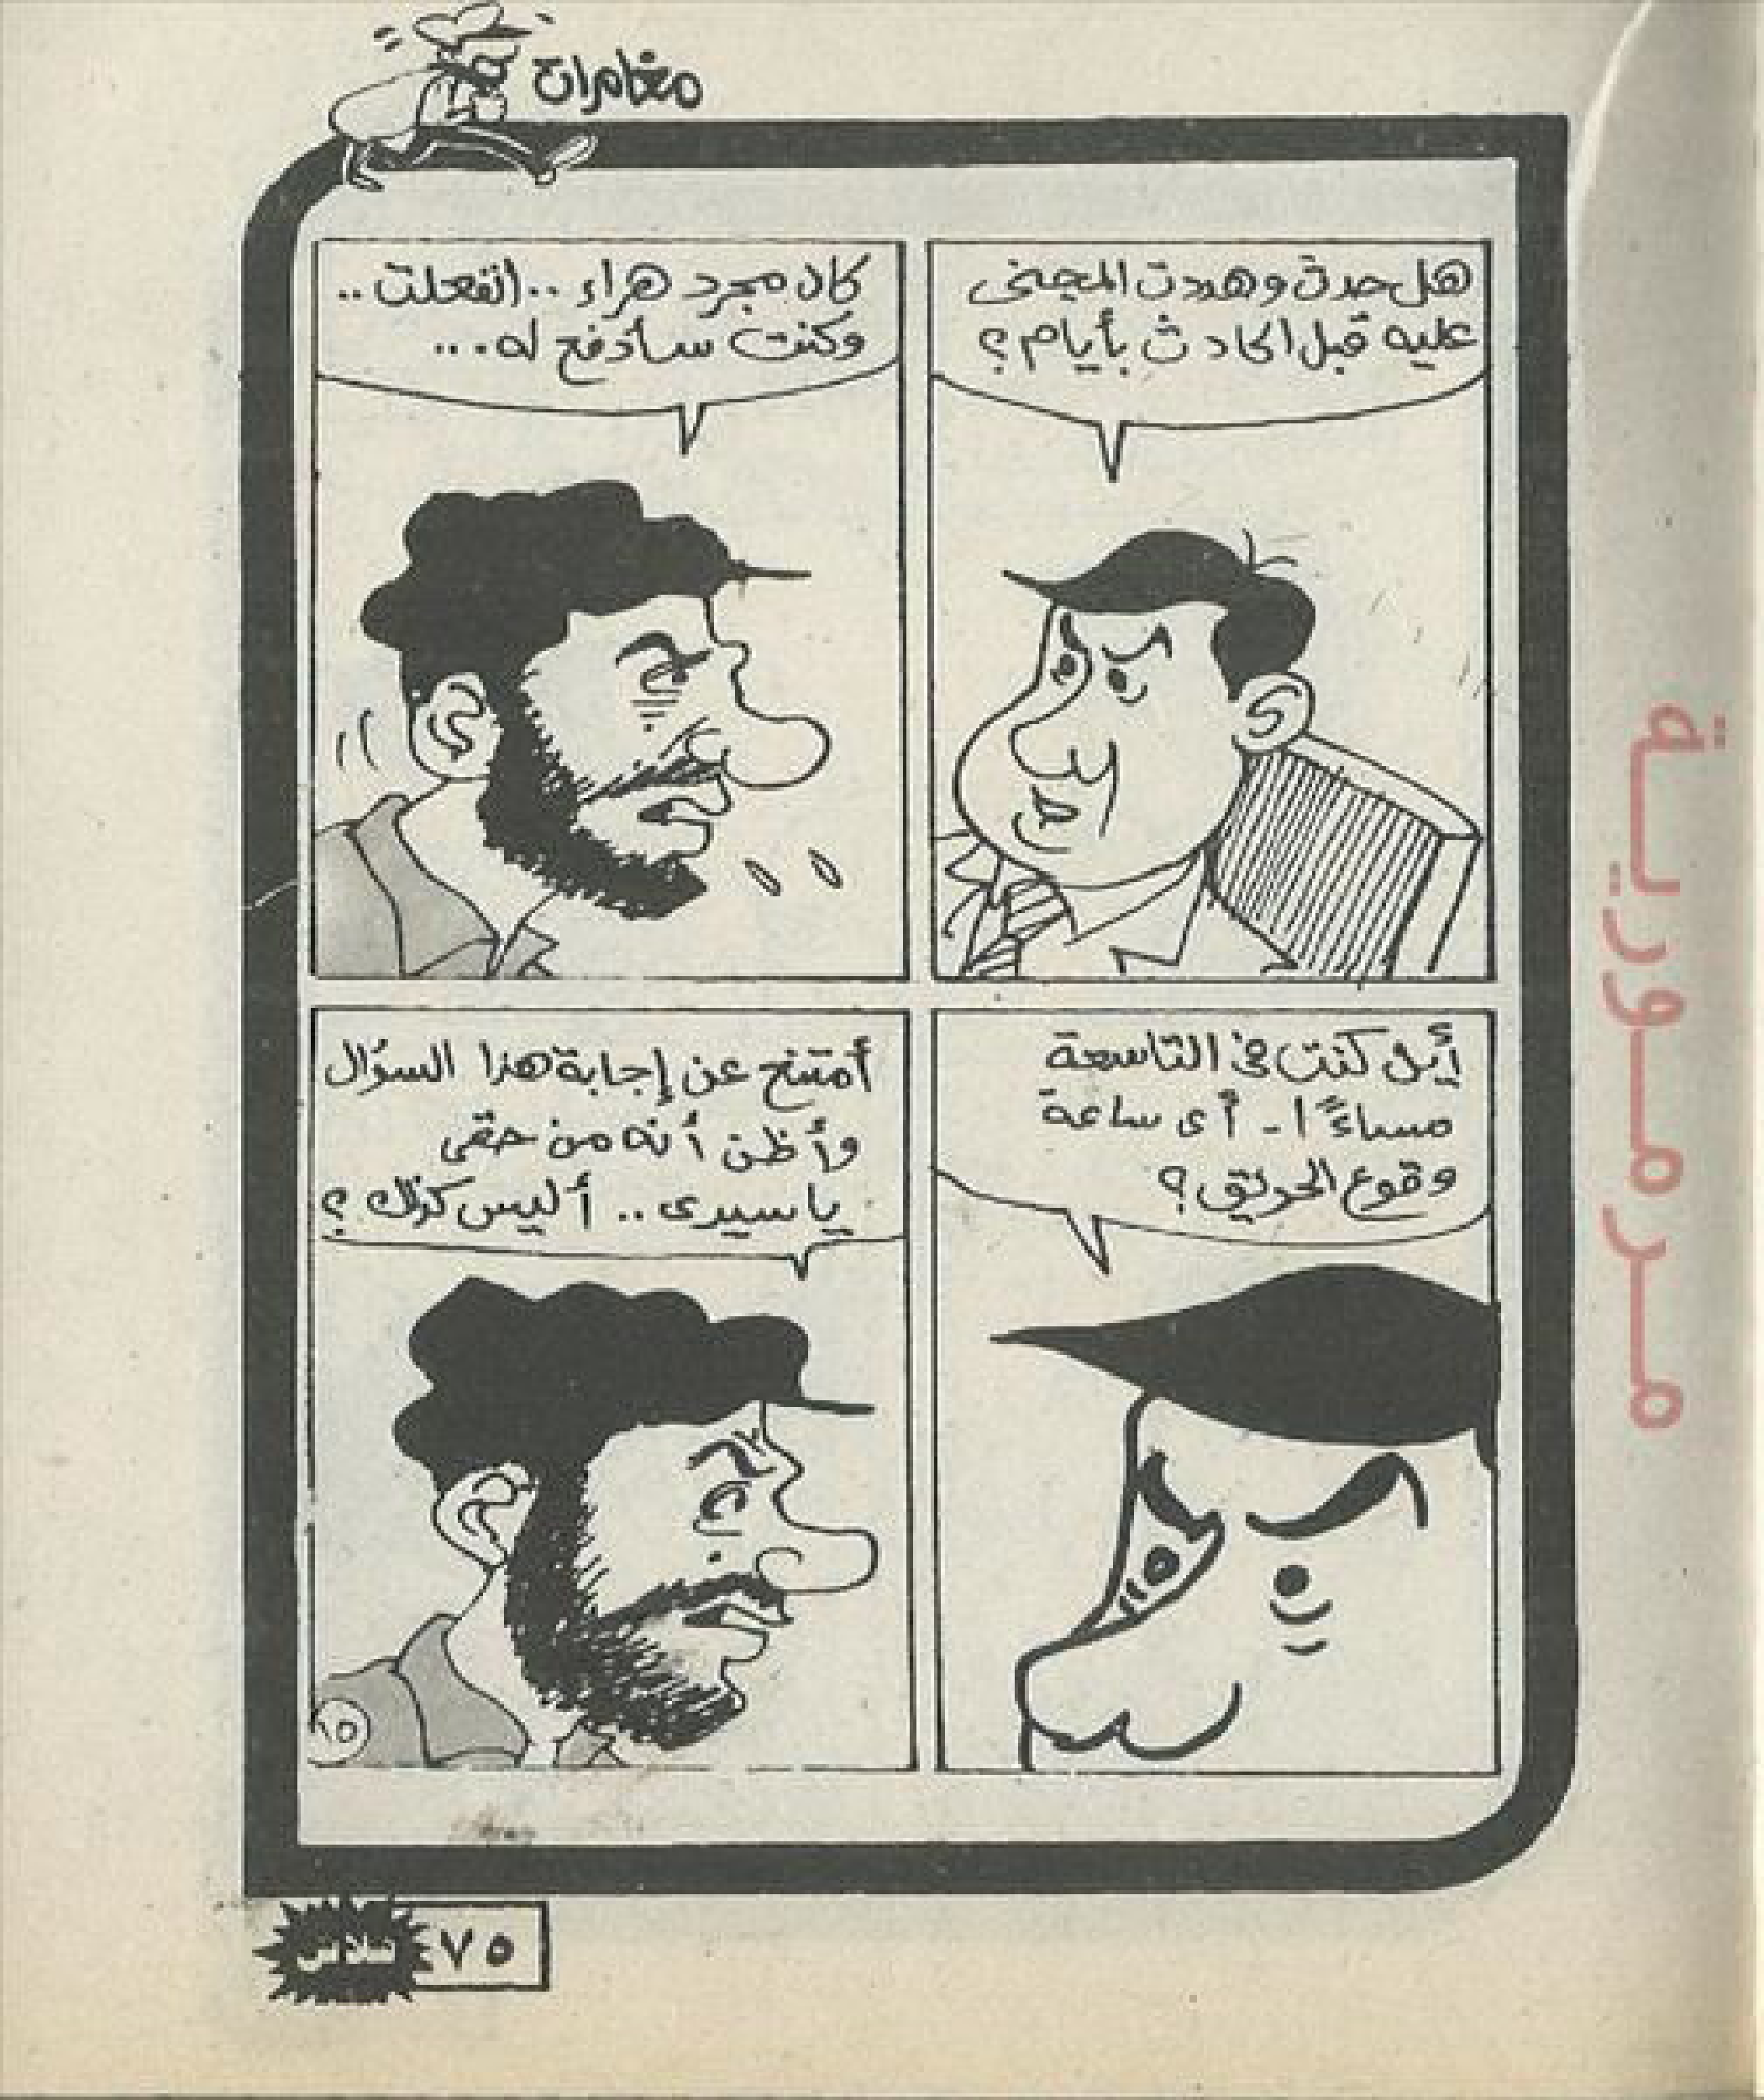 مغامرات
هل حدث وهددت المجنى
عليه قبل الحادث بأيام؟
كان مجرد هراء .. انفعلت ..
وكنت سأدفع له ...
أين كنت فى التاسعة
مساءً ا - أى ساعة
وقوع الحريق؟
أمتنع عن إجابة هذا السؤال
وأظن أنه من حقى
يا سيدى .. أليس كذلك؟
١٥
فلاش
٧٥
مرمورية